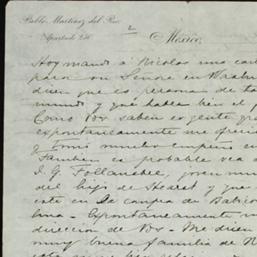 Pablo Martínez del Río
Apartado 236
2
México,
Hoy mandó á Nicolas una car
para un Señor en Washin
dicen que es persona de to
mundo y que habla bien el
Como Vds saben es gente
expontaneamente me ofreció
y tomó mucho empeño en
Tambien es probable vea á
J. G. Follansbee, joven mu
del hijo de Hearst y que
este en la compra de Babíco
bina - Expontaneamente m
direccion de Vds - Me dicen
muy buena familia de N